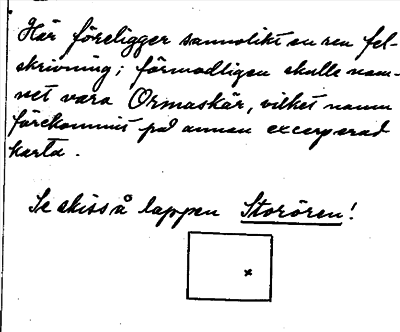 Här föreligger sannolikt en ren fel-
skrivning; förmodligen skulle nam-
net vara Ormaskär, vilket namn
förekommit på annan excerperad
karta.
Se skiss å lappen Storören!
x